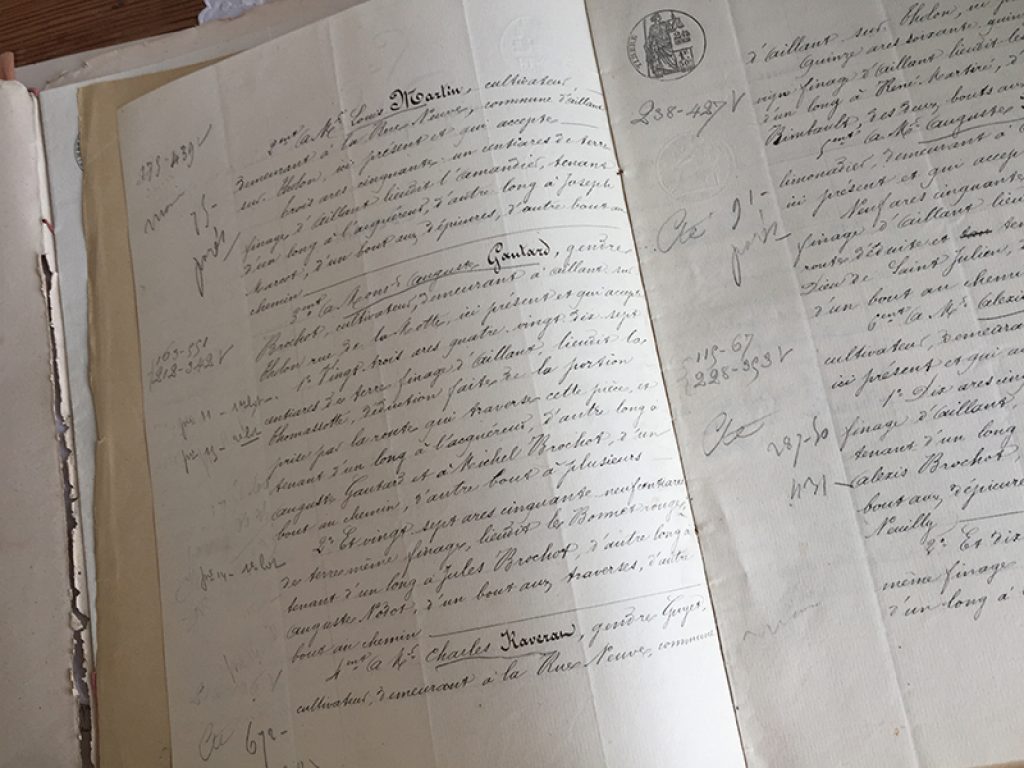 2ent A Mr. Louis Martin, cultivateur,
demeurant à la Rue Neuve, commune d'aillant
sur Tholon, ici présent et qui accepte
trois ares cinquante-un centiares de terre
finage d'aillant lieudit l'amandier, tenant
d'un long à l'acquéreur, d'autre long à Joseph
d'un bout aux d'épinures, d'autre bout au
chemin
3ent A Monsr. auguste Gautard, gendre
Brochot, cultivateur, demeurant à aillant sur
Tholon rue de la Motte, ici présent et qui accepte
1o. Vingt-trois ares quatre-vingt-dix-sept
centiares de terre finage d'aillant, lieudit la
Thomassette, déduction faite de la portion
prise par la route qui traverse cette pièce, et
tenant d'un long à l'acquéreur, d'autre long à
auguste Gautard et à Michel Brochot, d'un
bout au chemin, d'autre bout à plusieurs
2o. Et vingt-sept ares cinquante-neuf centiares
de terre même finage, lieudit les Bonnets rouges,
tenant d'un long à Jules Brochot, d'autre long à
auguste Nodot, d'un bout aux traverses, d'autre
bout au chemin
4ent A Mr. Charles Raverau, gendre Guyet,
cultivateur, demeurant à la Rue Neuve, commune
275-439
75-
163-551
212-342
672-
d'aillant sur Tholon, ici
Quinze ares soixante-quin
vign finage d'aillant lieudit les
d'un long à René-Martiré, d
Rimbault, des deux bouts aux
5ent A Mr. auguste
limonadier, demeurant à
ici présent et qui accep
Neuf ares cinquante
finage d'aillant lieu
route déduite et ten
Dieu de Saint Julien, d
d'un bout au chemin
6ent A Mr. alexis
cultivateur, demeura
ici présent et qui ac
1o. Dix ares cinq
finage d'aillant
tenant d'un long
alexis Brochot,
bout aux d'épinures
Neuilly
2o. Et dix
même finage
d'un long à
238-427
91-
115-67
228-353
287-50
431